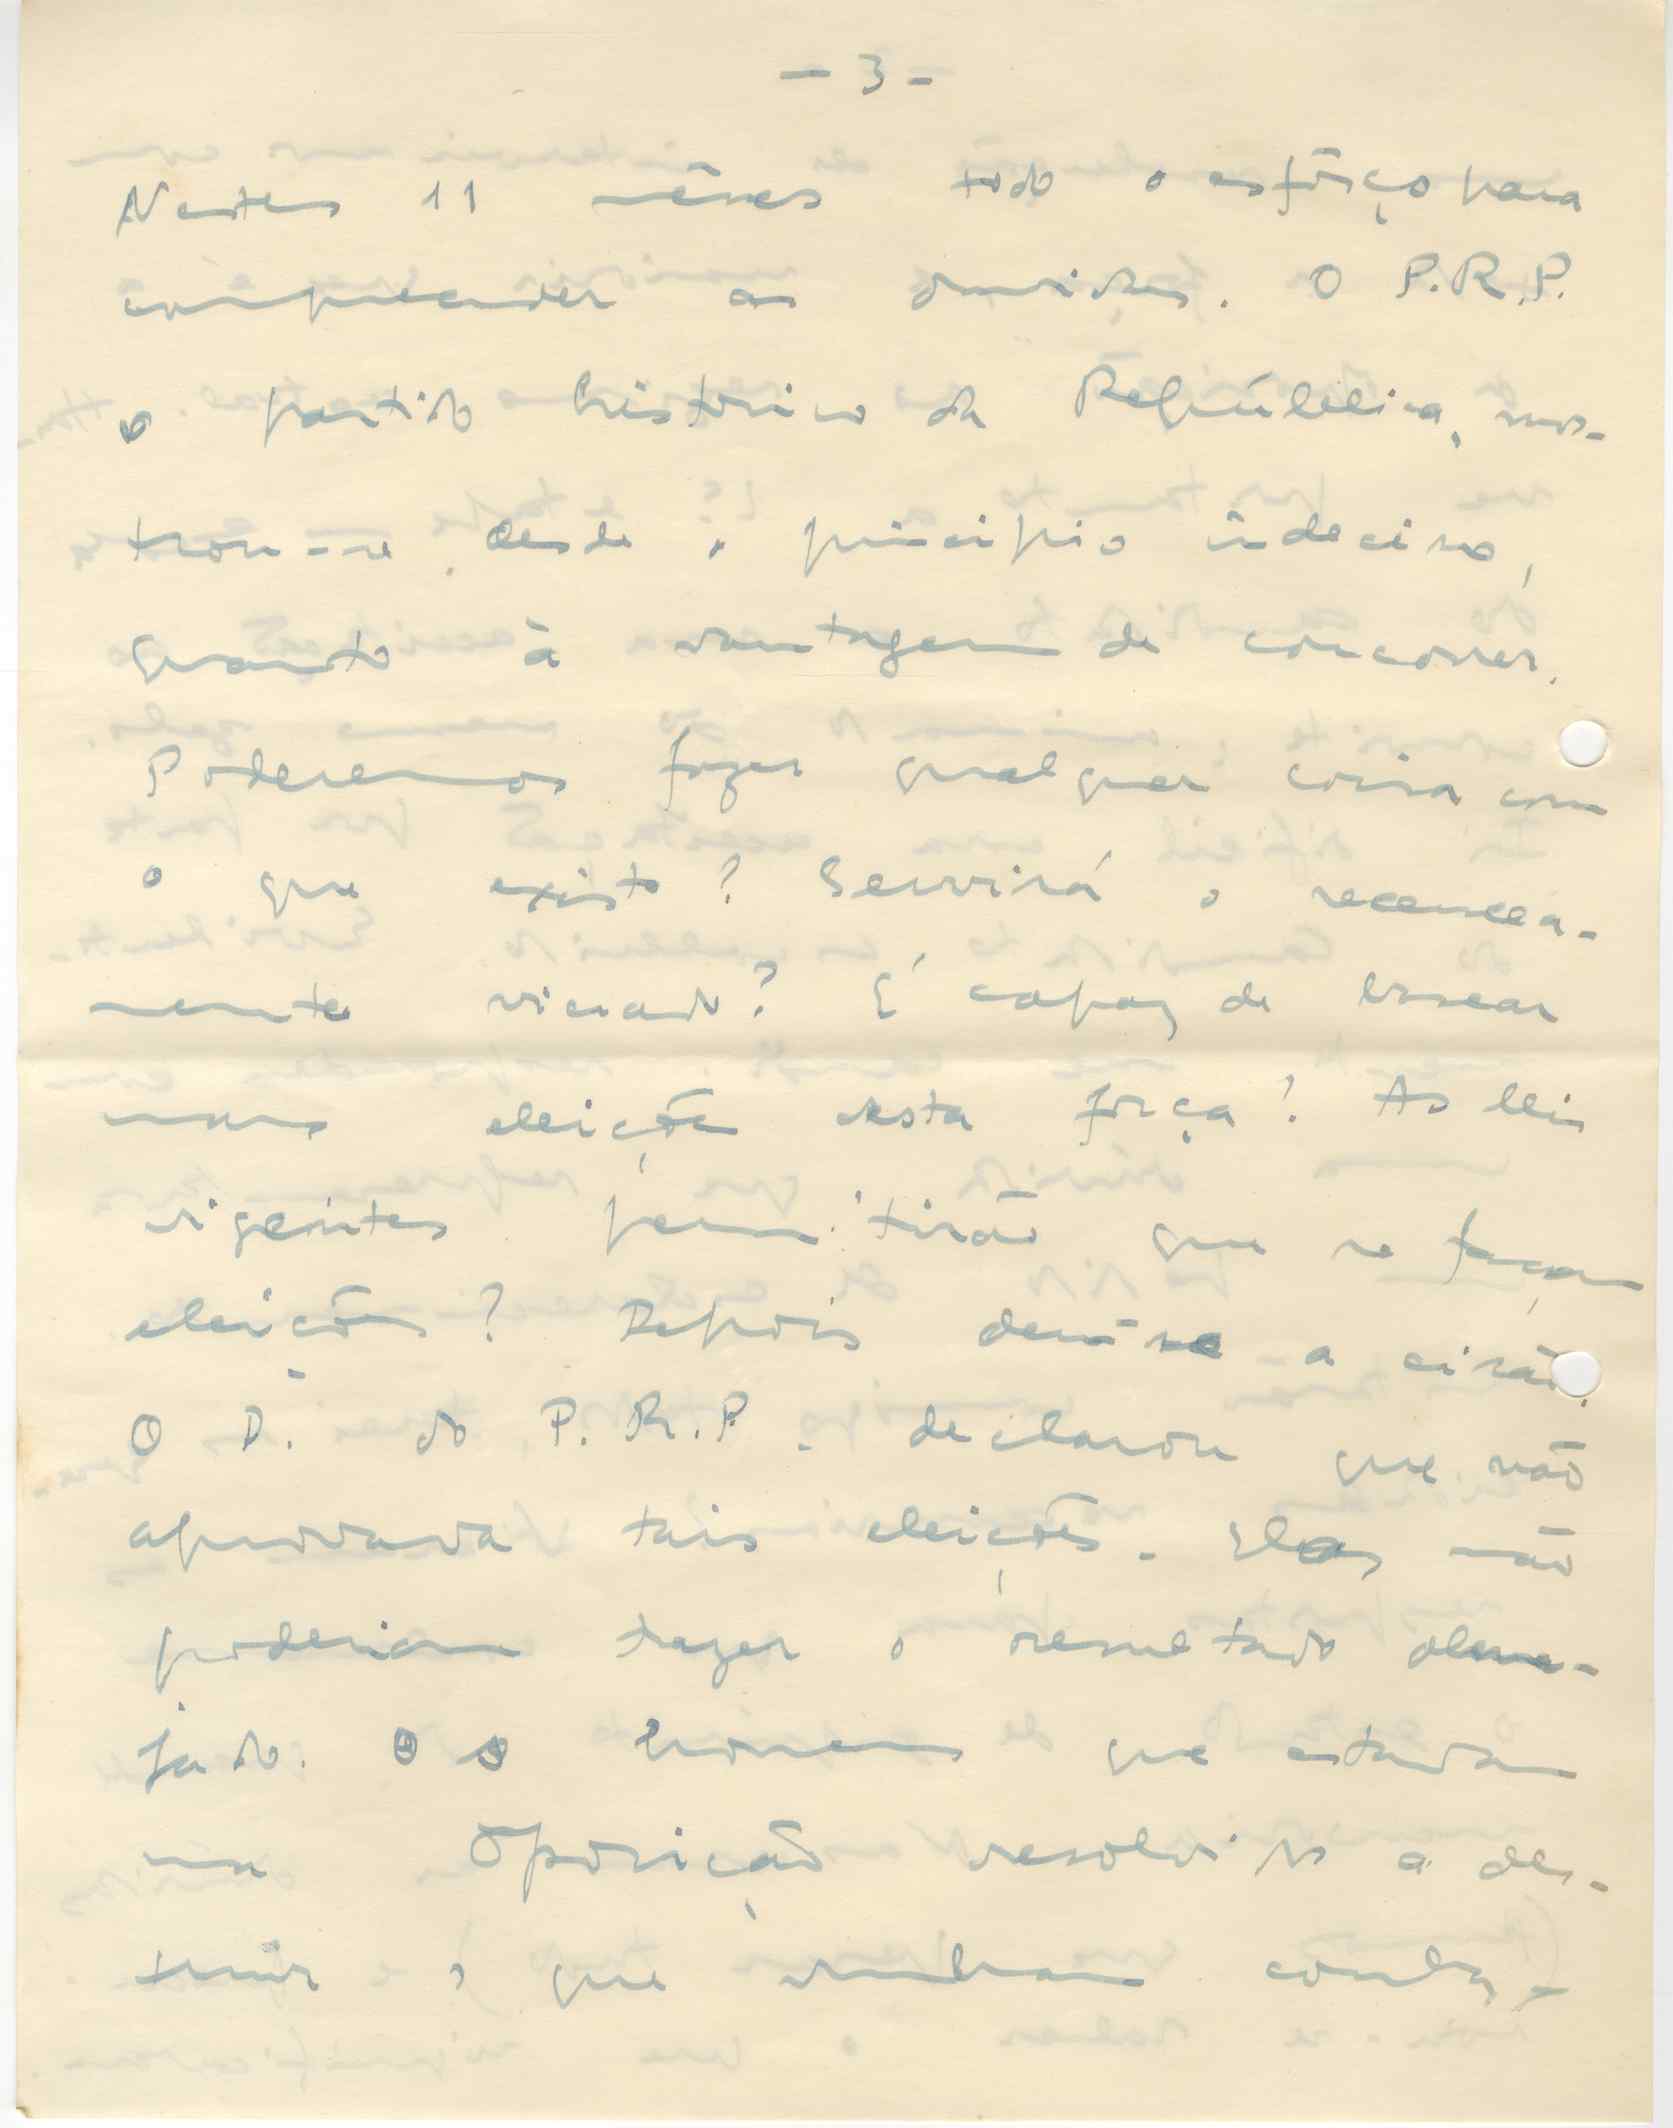 - 3 -
Nestes 11 mêses todo o esfôrço para
compreender as duvidas. O P.R.P.
o partido historico da República, mos-
trou-se desde o principio indeciso,
quanto à vantagem de concorrer.
Poderemos fazer qualquer coisa com
o que existe? Servirá o recencea-
mento viciado? É capaz de buscar
nas eleições esta força? As leis
vigentes permitirão que se façam
eleições? Depois deu-se a cisão.
O D. do P.R.P. declarou que não
aprovava tais eleições. Elas não
poderiam trazer o resultado alme-
jado. Os homens que estavam
na Oposição resolvido a des-
truir o que vinham